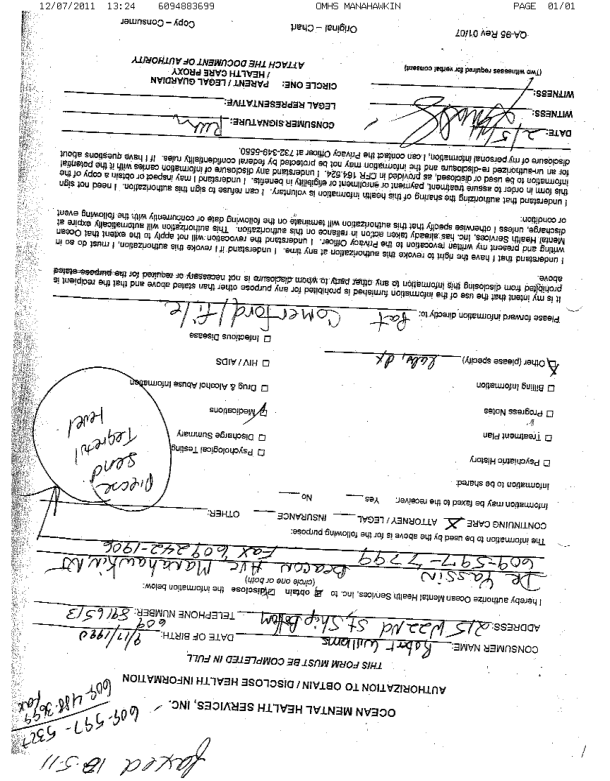 12/07/2011 13:24 6094883699 OMHS MANAHAWKIN PAGE 01/01
faxed 12-5-11
609-597-5327
609-488-3699
fax
OCEAN MENTAL HEALTH SERVICES, INC.
AUTHORIZATION TO OBTAIN / DISCLOSE HEALTH INFORMATION
THIS FORM MUST BE COMPLETED IN FULL
CONSUMER NAME: Robert Williams DATE OF BIRTH: 9/17/1990
ADDRESS: 215 W 22nd St, Ship Bottom TELEPHONE NUMBER: 609 8916513
I hereby authorize Ocean Mental Health Services, Inc. to obtain disclose the information below:
(circle one or both)
Dr Yassin Beacon Ave Manahawkin, NJ
609-597-7799 Fax 609 242-1906
The information to be used by the above is for the following purpose:
CONTINUING CARE X ATTORNEY / LEGAL INSURANCE OTHER:
Information may be faxed to the receiver: Yes No
Information to be shared:
Psychiatric History
Psychological Testing
Treatment Plan
Discharge Summary
Progress Notes
Medications
Billing Information
Drug & Alcohol Abuse Information
HIV / AIDS
Other (please specify) labs, dx
Infectious Disease
Please
send
Tegretol
level.
Please forward information directly to: Pat Comerford / file
It is my intent that the use of the information furnished is prohibited for any purpose other than stated above and that the recipient is
prohibited from disclosing this information to any other party to whom disclosure is not necessary or required for the purpose stated
above.
I understand that I have the right to revoke this authorization at any time. I understand if I revoke this authorization, I must do so in
writing and present my written revocation to the Privacy Officer. I understand the revocation will not apply to the extent that Ocean
Mental Health Services, Inc. has already taken action in reliance on this authorization. This authorization will automatically expire at
discharge, unless I otherwise specify that this authorization will terminate on the following date or concurrently with the following event
or condition:
I understand that authorizing the sharing of this health information is voluntary. I can refuse to sign this authorization. I need not sign
this form in order to assure treatment, payment or enrollment or eligibility in benefits. I understand I may inspect or obtain a copy of the
information to be used or disclosed, as provided in CFR 164.524. I understand any disclosure of information carries with it the potential
for an un-authorized re-disclosure and the information may not be protected by federal confidentiality rules. If I have questions about
disclosure of my personal information, I can contact the Privacy Officer at 732-349-5550.
DATE: 12/5/11 CONSUMER SIGNATURE:
WITNESS: LEGAL REPRESENTATIVE:
WITNESS: CIRCLE ONE: PARENT / LEGAL GUARDIAN
/ HEALTH CARE PROXY
(Two witnesses required for verbal consent) ATTACH THE DOCUMENT OF AUTHORITY
QA-95 Rev 01/07 Original – Chart Copy – Consumer